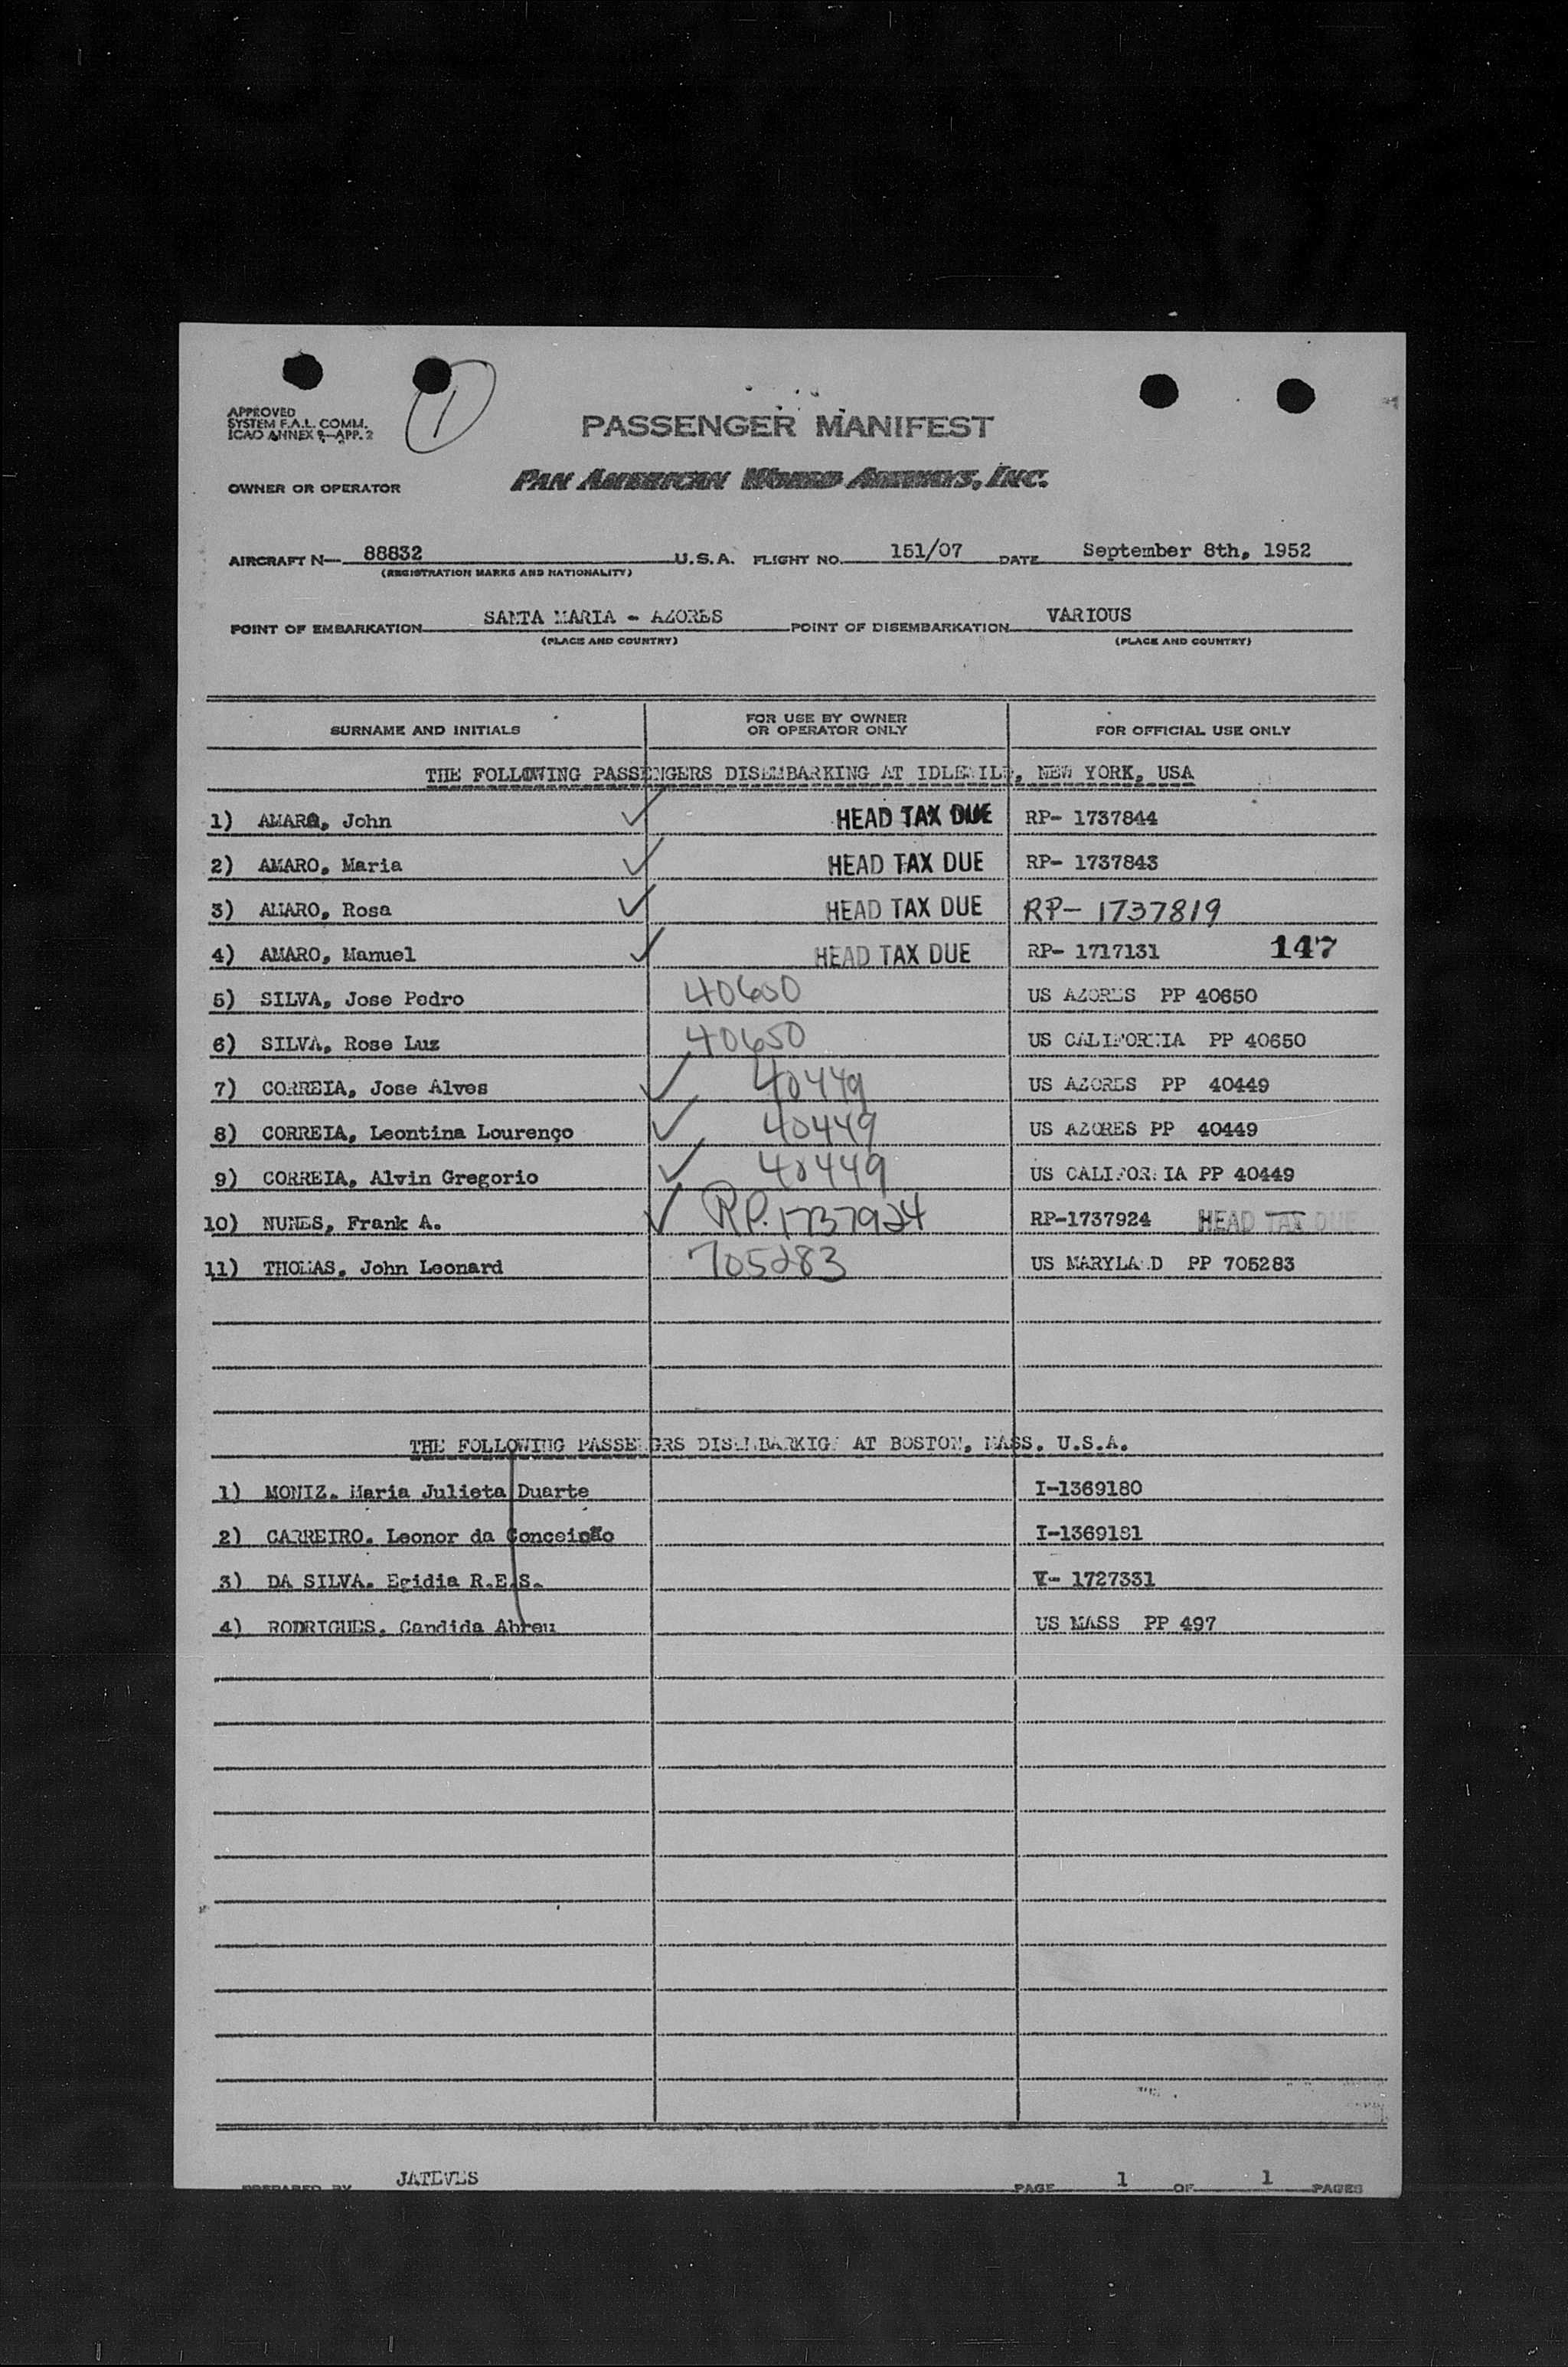 1
APPROVED
SYSTEM F.A.L. COMM.
ICAO ANNEX 9—APP. 2
PASSENGER MANIFEST
OWNER OR OPERATOR PAN AMERICAN WORLD AIRWAYS, INC.
AIRCRAFT N— 88832 U.S.A. FLIGHT NO. 151/07 DATE September 8th, 1952
(REGISTRATION MARKS AND NATIONALITY)
POINT OF EMBARKATION SANTA MARIA - AZORES POINT OF DISEMBARKATION VARIOUS
(PLACE AND COUNTRY) (PLACE AND COUNTRY)
SURNAME AND INITIALS FOR USE BY OWNER OR OPERATOR ONLY FOR OFFICIAL USE ONLY
THE FOLLOWING PASSENGERS DISEMBARKING AT IDLEWILD, NEW YORK, USA
1) AMARO, John ✓ HEAD TAX DUE RP- 1737844
2) AMARO, Maria ✓ HEAD TAX DUE RP- 1737843
3) AMARO, Rosa ✓ HEAD TAX DUE RP- 1737819
4) AMARO, Manuel ✓ HEAD TAX DUE RP- 1717131 147
5) SILVA, Jose Pedro 40650 US AZORES PP 40650
6) SILVA, Rose Luz 40650 US CALIFORNIA PP 40650
7) CORREIA, Jose Alves ✓ 40449 US AZORES PP 40449
8) CORREIA, Leontina Lourenço ✓ 40449 US AZORES PP 40449
9) CORREIA, Alvin Gregorio ✓ 40449 US CALIFORNIA PP 40449
10) NUNES, Frank A. ✓ RP.1737924 RP-1737924 HEAD TAX DUE
11) THOMAS, John Leonard 705283 US MARYLAND PP 705283
THE FOLLOWING PASSENGRS DISEMBARKIG AT BOSTON, MASS. U.S.A.
1) MONIZ. Maria Julieta Duarte I-1369180
2) CARREIRO. Leonor da Conceição I-1369181
3) DA SILVA. Egidia R.E.S. V- 1727331
4) RODRIGUES. Candida Abreu US MASS PP 497
PREPARED BY JATEVES PAGE 1 OF 1 PAGES